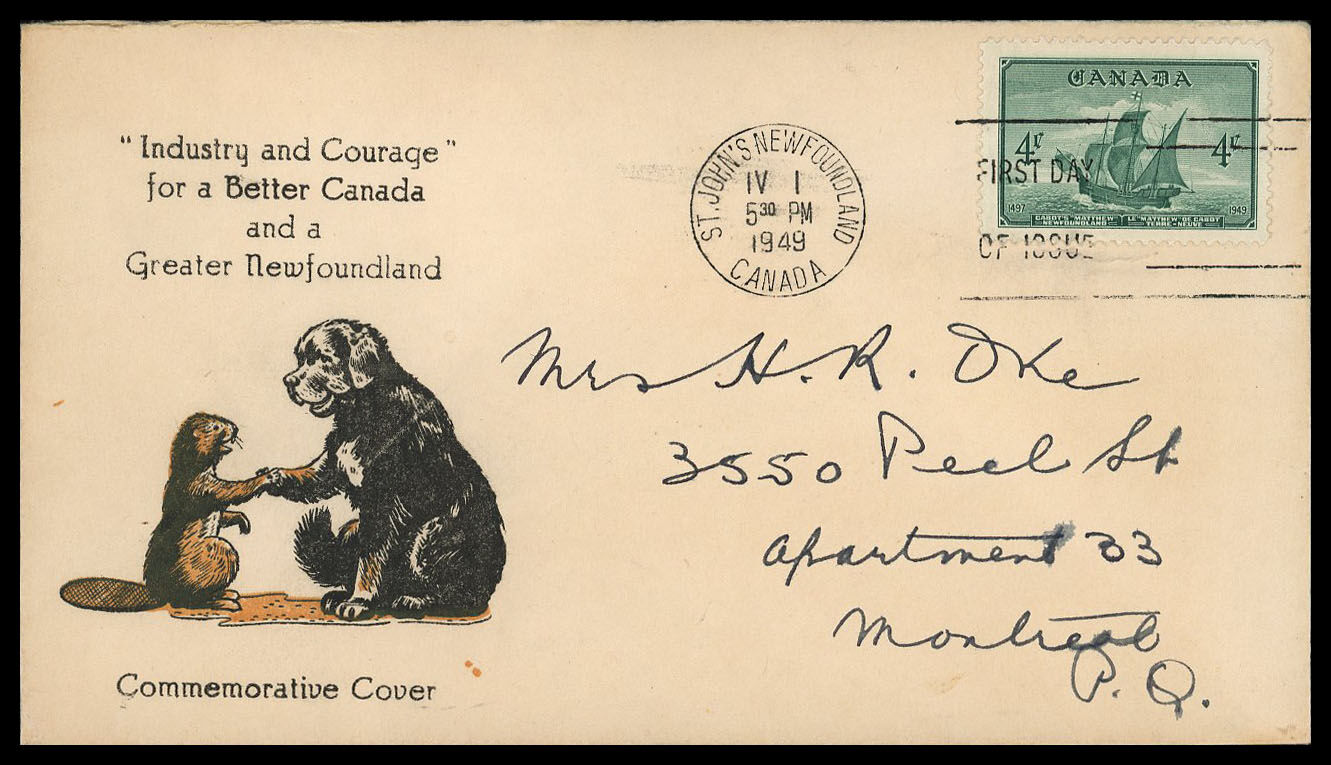 "Industry and Courage"
for a Better Canada
and a
Greater Newfoundland
Commemorative Cover
ST. JOHN'S NEWFOUNDLAND
IV 1
5 30 PM
1949
CANADA
FIRST DAY
OF ISSUE
CANADA
4¢ 4¢
1497 1949
CABOT'S "MATTHEW" LE "MATTHEW" DE CABOT
NEWFOUNDLAND TERRE-NEUVE
Mrs H. R. Oke
3550 Peel St
Apartment 33
Montreal
P. Q.